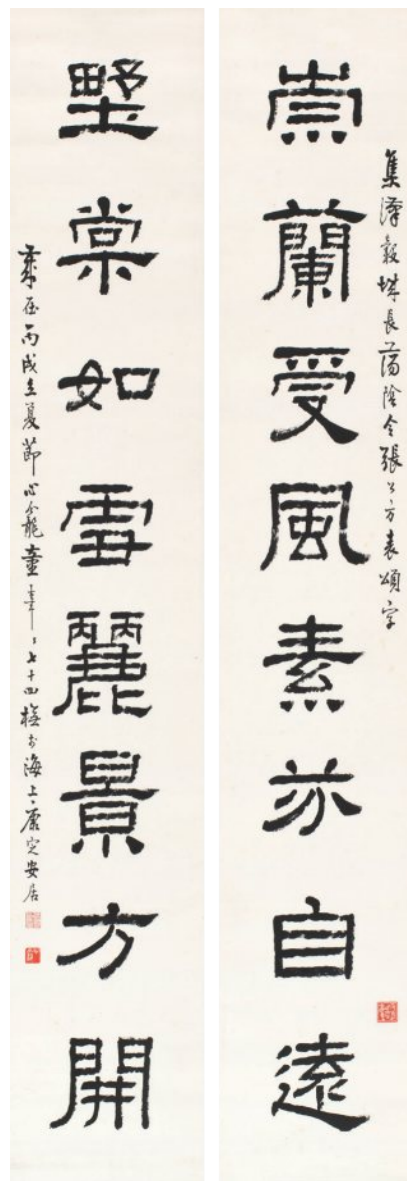 崇蘭受風素亦自遠
集漢穀城長蕩陰令張公方表頌字
墅棠如雪麗景方開
歲在丙戌立夏節心龕童大年年七十四橅於海上康定安居